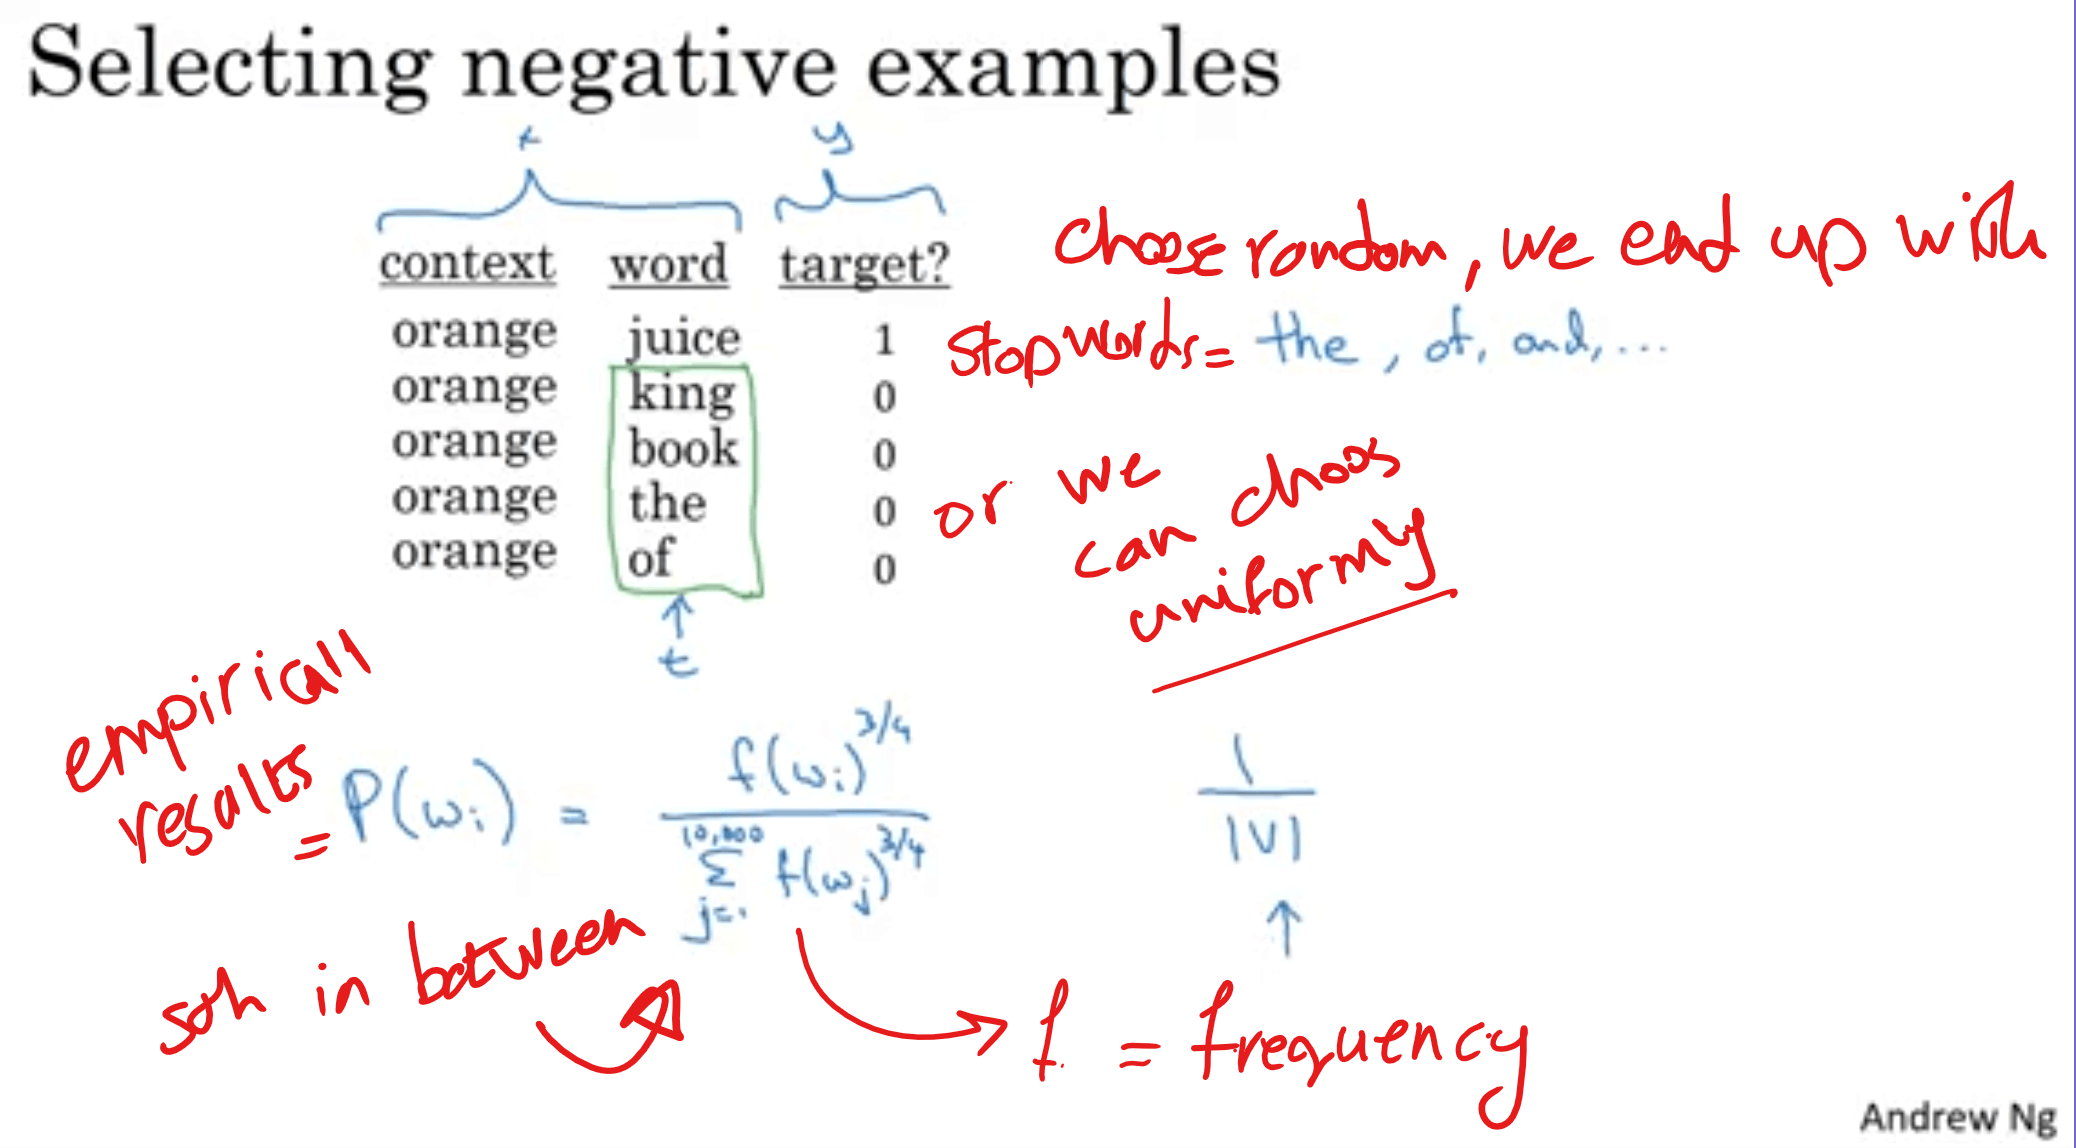 Selecting negative examples
x y
context word target?
orange juice 1
orange king 0
orange book 0
orange the 0
orange of 0
t
choose random, we end up with
stopwords= the, of, and, ...
or we
can choos
uniformy
empiricall
results
= P(wᵢ) = f(wᵢ)^3/4 / Σ_{j=1}^{10,000} f(wⱼ)^3/4
1/|V|
sth in between
f = frequency
Andrew Ng